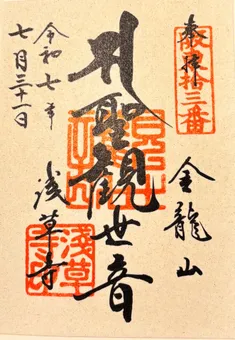 奉拝
坂東十三番
金龍山
聖観世音
浅草寺
浅草寺
令和七年
七月三十一日